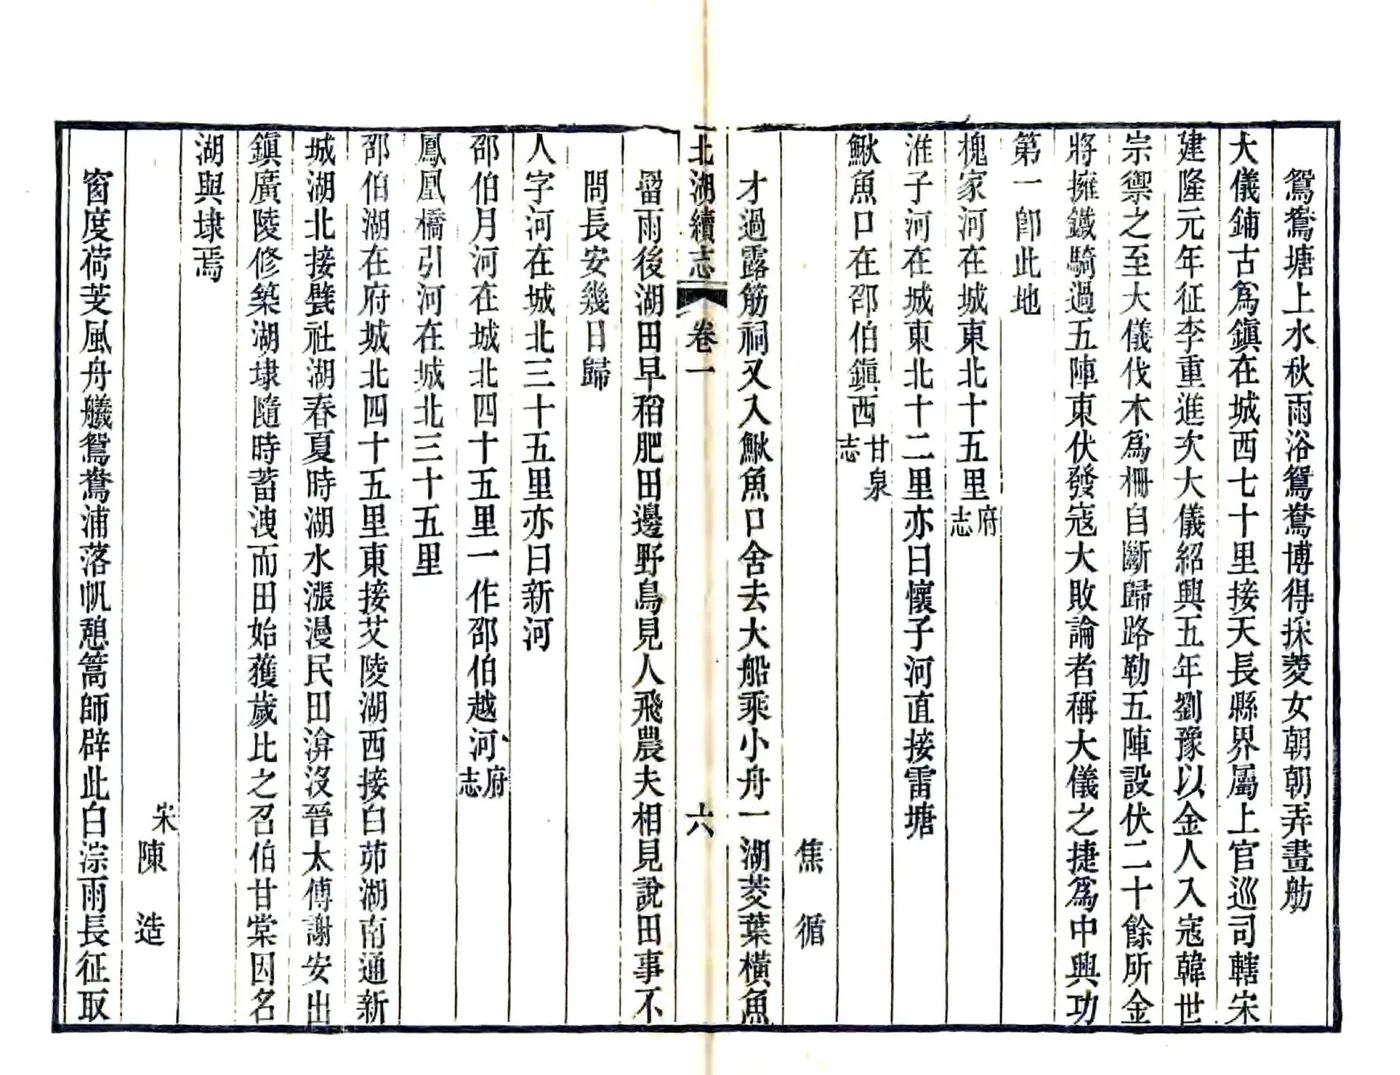 鴛鴦塘上水秋雨浴鴛鴦博得採菱女朝朝弄畫舫
大儀鋪古爲鎮在城西七十里接天長縣界屬上官巡司轄宋
建隆元年征李重進次大儀紹興五年劉豫以金人入寇韓世
宗禦之至大儀伐木爲柵自斷歸路勒五陣設伏二十餘所金
將擁鐵騎過五陣東伏發寇大敗論者稱大儀之捷爲中興功
第一卽此地
槐家河在城東北十五里府志
淮子河在城東北十二里亦曰懷子河直接雷塘
鰍魚口在邵伯鎮西甘泉志
焦循
才過露筋祠又入鰍魚口舍去大船乘小舟一湖菱葉橫魚
北湖續志 卷一 六
罶雨後湖田早稻肥田邊野鳥見人飛農夫相見說田事不
問長安幾日歸
人字河在城北三十五里亦曰新河
邵伯月河在城北四十五里一作邵伯越河府志
鳳凰橋引河在城北三十五里
邵伯湖在府城北四十五里東接艾陵湖西接白茆湖南通新
城湖北接甓社湖春夏時湖水漲漫民田渰沒晉太傅謝安出
鎮廣陵修築湖埭隨時蓄洩而田始獲歲比之召伯甘棠因名
湖與埭焉
宋陳造
窗度荷芰風舟艤鴛鴦浦落帆憩篙師辟此白淙雨長征取